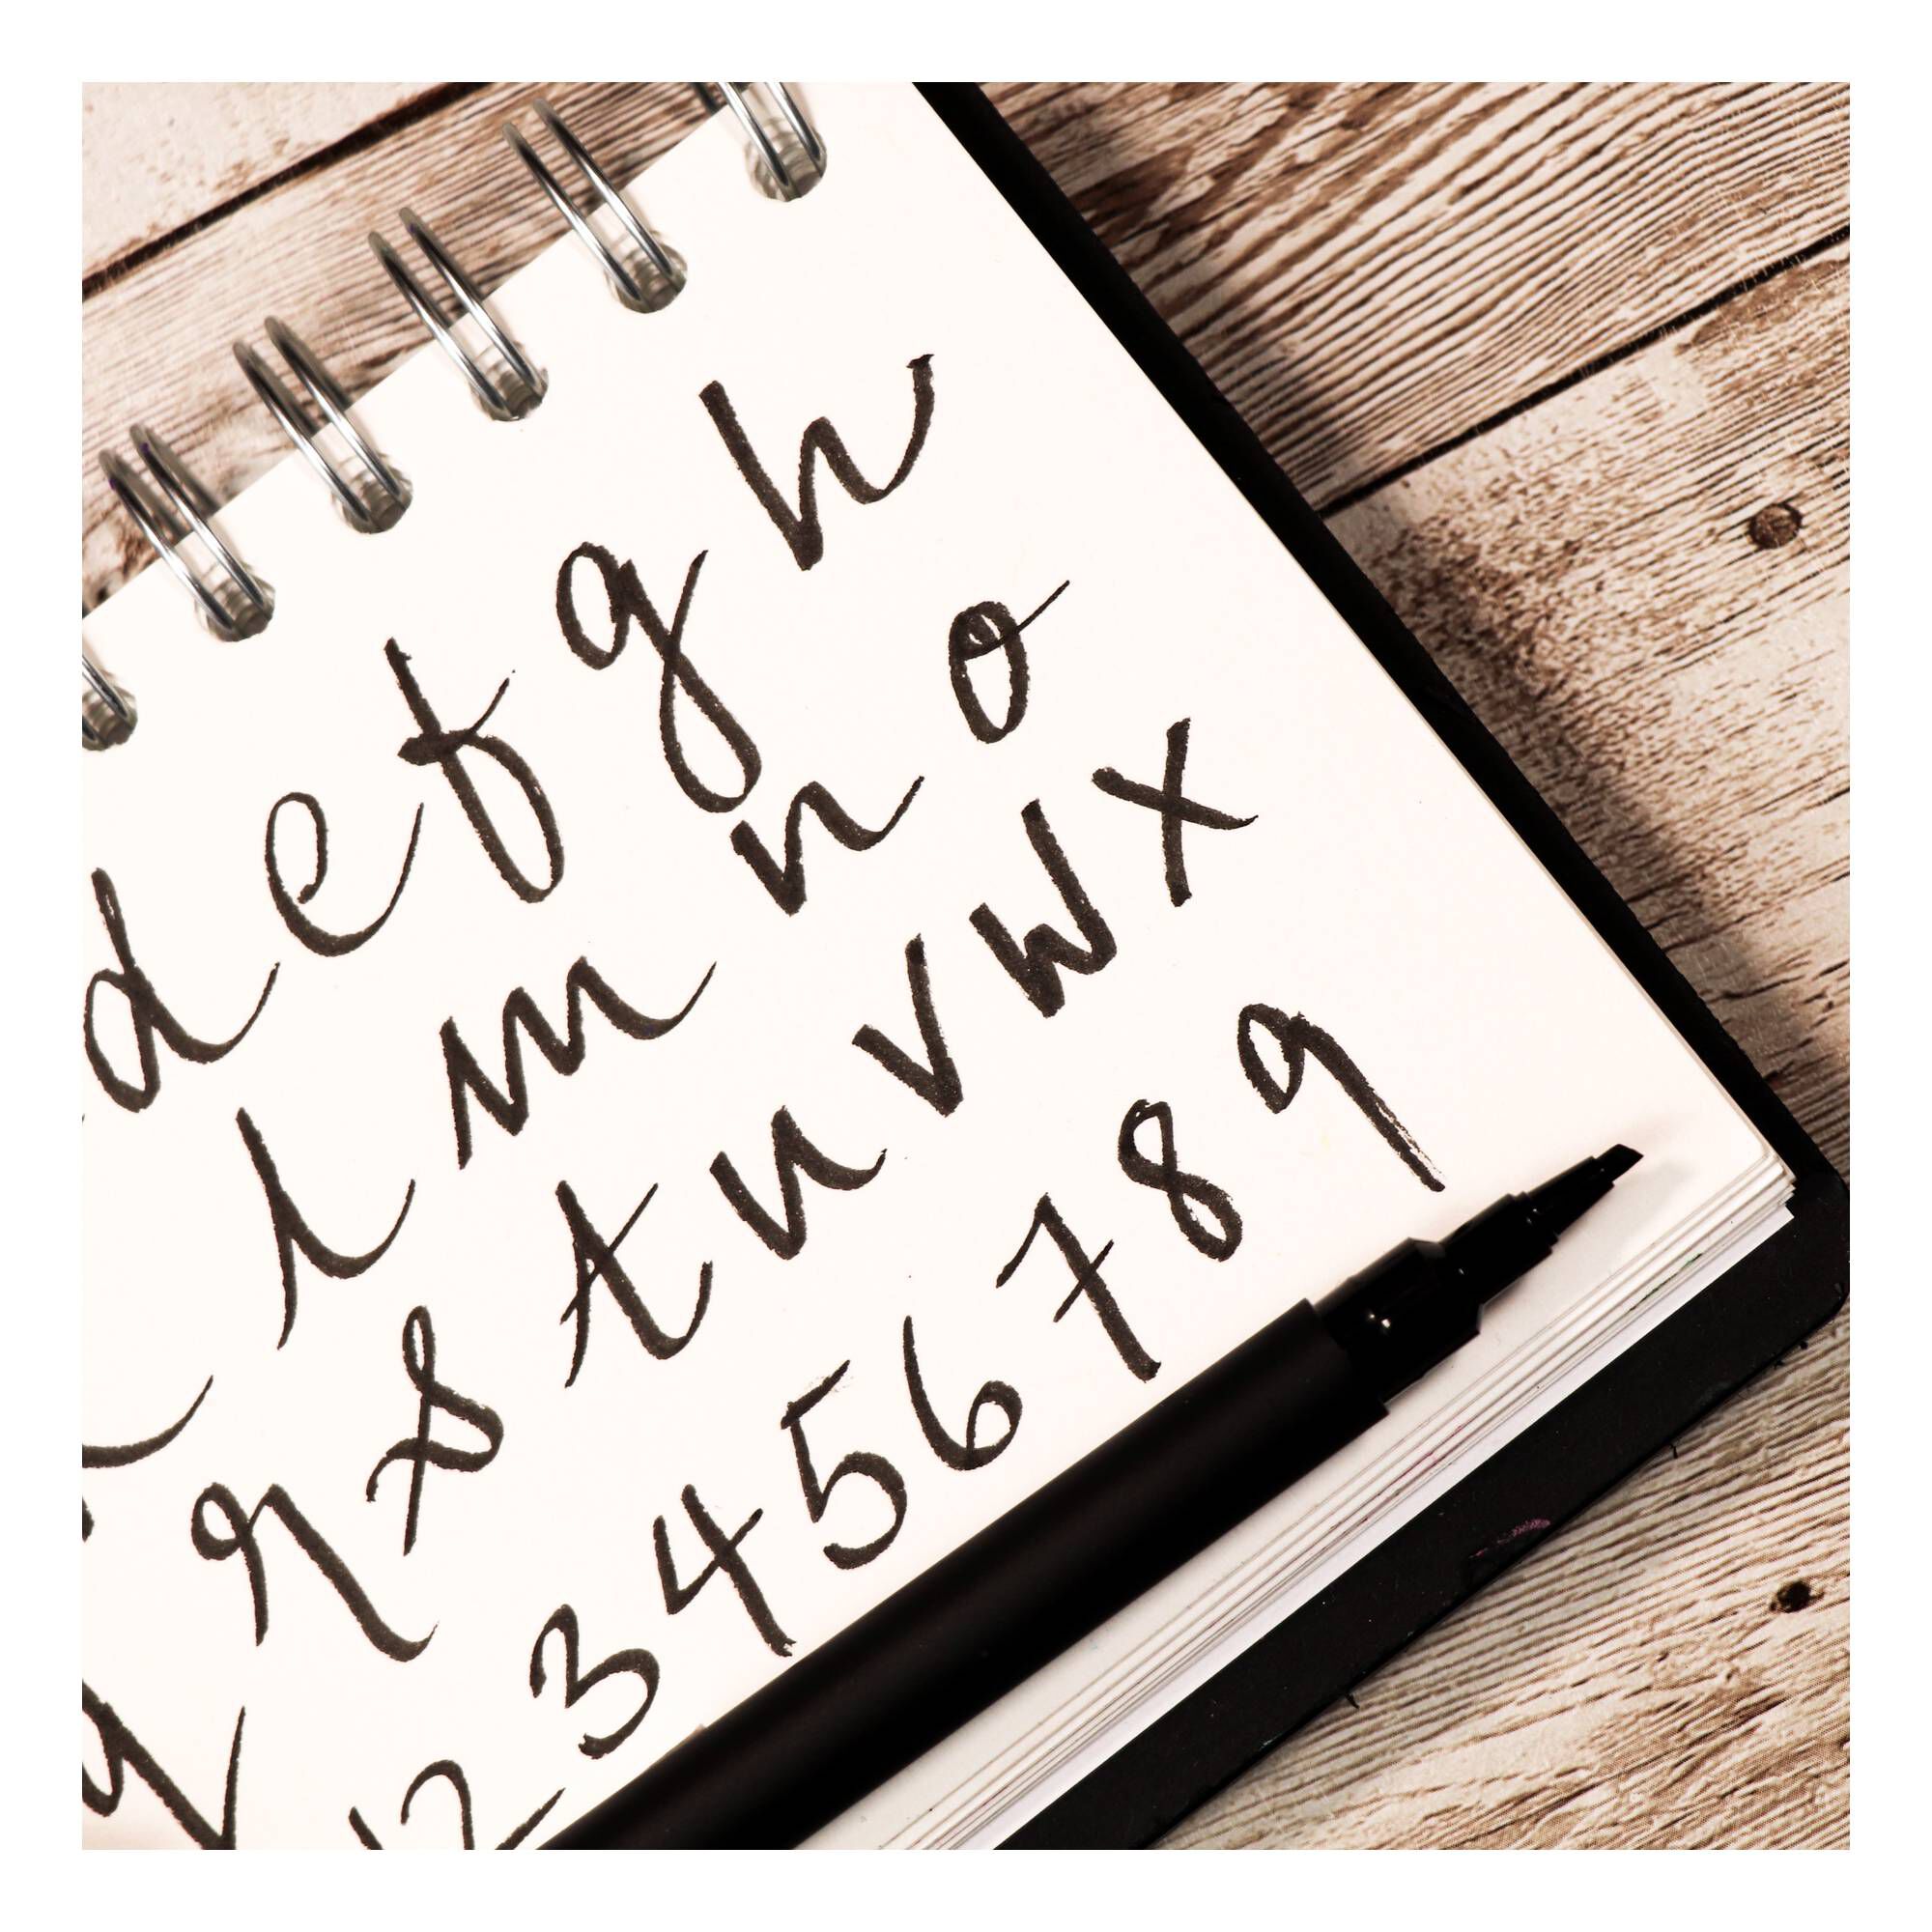 d e f g h
l m n o
q r s t u v w x
1 2 3 4 5 6 7 8 9